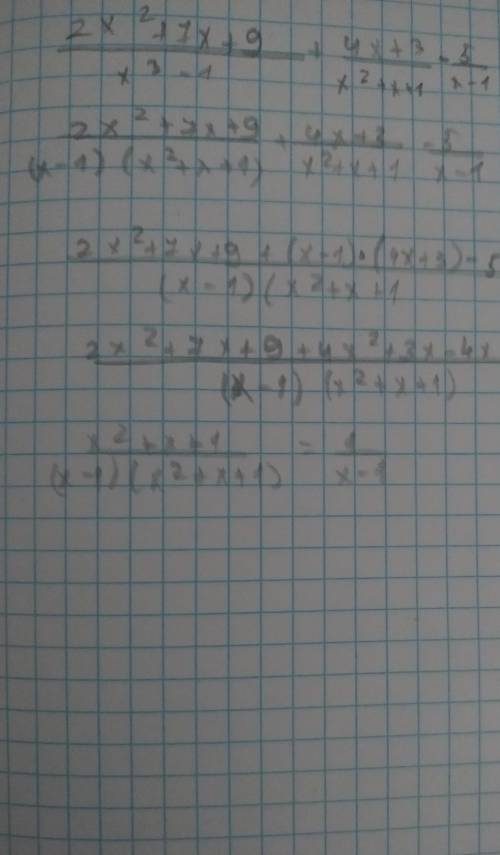 2x²+7x+9 / x³-1 + 4x+3 / x²+x+1 - 5 / x-1
2x²+7x+9 / (x-1)(x²+x+1) + 4x+3 / x²+x+1 - 5 / x-1
2x²+7x+9+(x-1)·(4x+3)-5 / (x-1)(x²+x+1
2x²+7x+9+4x²+3x-4x / (x-1)(x²+x+1)
x²+x+1 / (x-1)(x²+x+1) = 1 / x-1